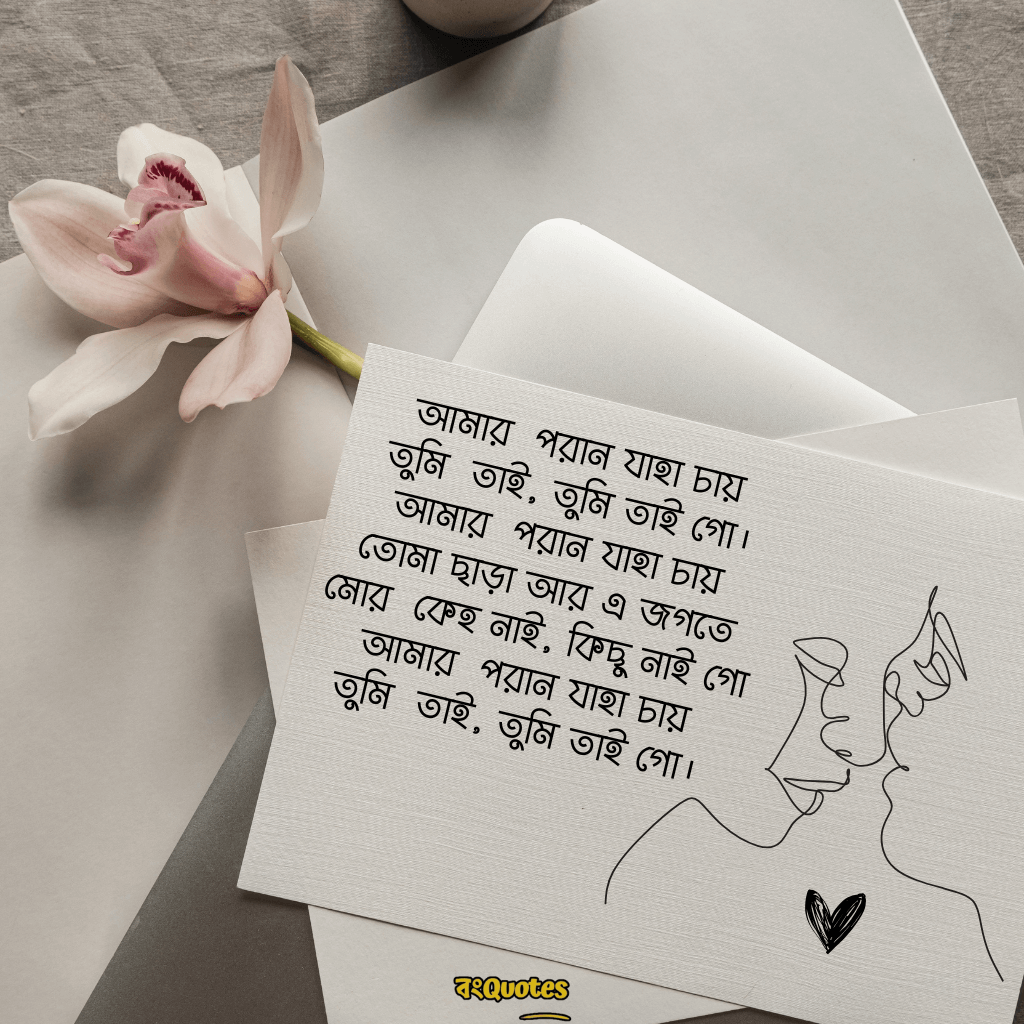 আমার পরান যাহা চায়
তুমি তাই, তুমি তাই গো।
আমার পরান যাহা চায়
তোমা ছাড়া আর এ জগতে
মোর কেহ নাই, কিছু নাই গো
আমার পরান যাহা চায়
তুমি তাই, তুমি তাই গো।
বংQuotes